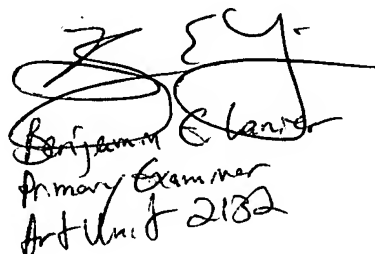 Benjamin E Lanier
Primary Examiner
Art Unit 2132